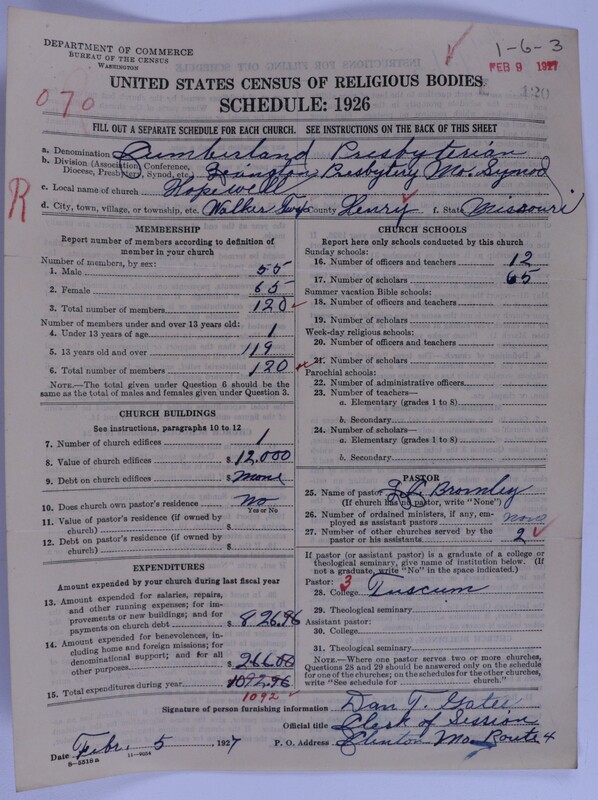 DEPARTMENT OF COMMERCE
BUREAU OF THE CENSUS
WASHINGTON
1-6-3
FEB 9 1927
120
UNITED STATES CENSUS OF RELIGIOUS BODIES
SCHEDULE: 1926
070
FILL OUT A SEPARATE SCHEDULE FOR EACH CHURCH. SEE INSTRUCTIONS ON THE BACK OF THIS SHEET
a. Denomination Cumberland Presbyterian
b. Division (Association, Conference, Diocese, Presbytery, Synod, etc.) Lexington Presbytery Mo. Synod
c. Local name of church Hopewell
R
d. City, town, village, or township, etc. Walker Twp County Henry f. State Missouri
MEMBERSHIP
Report number of members according to definition of
member in your church
Number of members, by sex:
1. Male 55
2. Female 65
3. Total number of members 120
Number of members under and over 13 years old:
4. Under 13 years of age 1
5. 13 years old and over 119
6. Total number of members 120
NOTE.—The total given under Question 6 should be
same as the total of males and females given under Question 3.
CHURCH BUILDINGS
See instructions, paragraphs 10 to 12
7. Number of church edifices 1
8. Value of church edifices $ 12,000
9. Debt on church edifices $ none
10. Does church own pastor's residence? No
Yes or No
11. Value of pastor's residence (if owned by
church) $
12. Debt on pastor's residence (if owned by
church) $
EXPENDITURES
Amount expended by your church during last fiscal year
13. Amount expended for salaries, repairs,
and other running expenses; for im-
provements or new buildings; and for
payments on church debt $ 826.96
14. Amount expended for benevolences, in-
cluding home and foreign missions; for
denominational support; and for all
other purposes $ 266.00
15. Total expenditures during year 1092.96
1092
CHURCH SCHOOLS
Report here only schools conducted by this church
Sunday schools:
16. Number of officers and teachers 12
17. Number of scholars 65
Summer vacation Bible schools:
18. Number of officers and teachers
19. Number of scholars
Week-day religious schools:
20. Number of officers and teachers
21. Number of scholars
Parochial schools:
22. Number of administrative officers
23. Number of teachers—
a. Elementary (grades 1 to 8)
b. Secondary
24. Number of scholars—
a. Elementary (grades 1 to 8)
b. Secondary
PASTOR
25. Name of pastor Bromley
(If church has no pastor, write "None")
26. Number of ordained ministers, if any, em-
ployed as assistant pastors None
27. Number of other churches served by the
pastor or his assistants 2
If pastor (or assistant pastor) is a graduate of a college or
theological seminary, give name of institution below. (If
not a graduate, write "No" in the space indicated.)
Pastor: 3
28. College Tusculum
29. Theological seminary
Assistant pastor:
30. College
31. Theological seminary
NOTE.—Where one pastor serves two or more churches,
Questions 28 and 29 should be answered only on the schedule
for one of the churches; on the schedules for the other churches,
write "See schedule for church."
Signature of person furnishing information Dan T.
Official title Clerk of Session
Date Febr. 5, 1927 P. O. Address Clinton Mo. Route 4
8-5518a